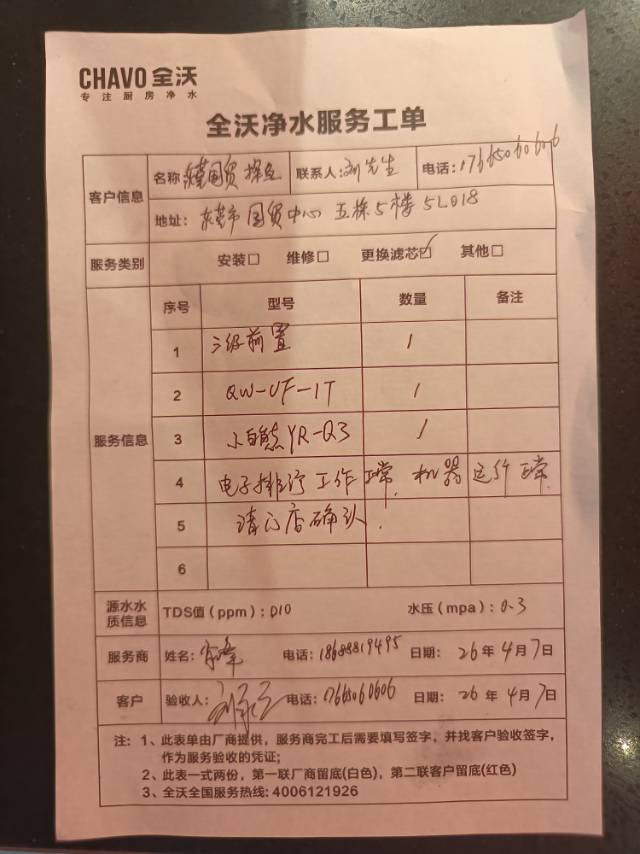 CHAVO 全沃
专注厨房净水
全沃净水服务工单
客户信息
名称 东莞国贸探鱼 联系人:刘先生 电话:17665060606
地址: 东莞市国贸中心 五栋5楼 5L018
服务类别 安装□ 维修□ 更换滤芯☑ 其他□
服务信息
序号 型号 数量 备注
1 三级前置 1
2 QW-UF-1T 1
3 YR-Q3 1
4 电子排污工作正常,机器运行正常
5 请门店确认!
6
源水水质信息 TDS值(ppm): 010 水压(mpa): 0.3
服务商 姓名: 电话: 18688819495 日期: 26年4月7日
客户 验收人: 电话: 17665060606 日期: 26年4月7日
注: 1、此表单由厂商提供,服务商完工后需要填写签字,并找客户验收签字,
作为服务验收的凭证;
2、此表一式两份,第一联厂商留底(白色),第二联客户留底(红色)
3、全沃全国服务热线: 4006121926